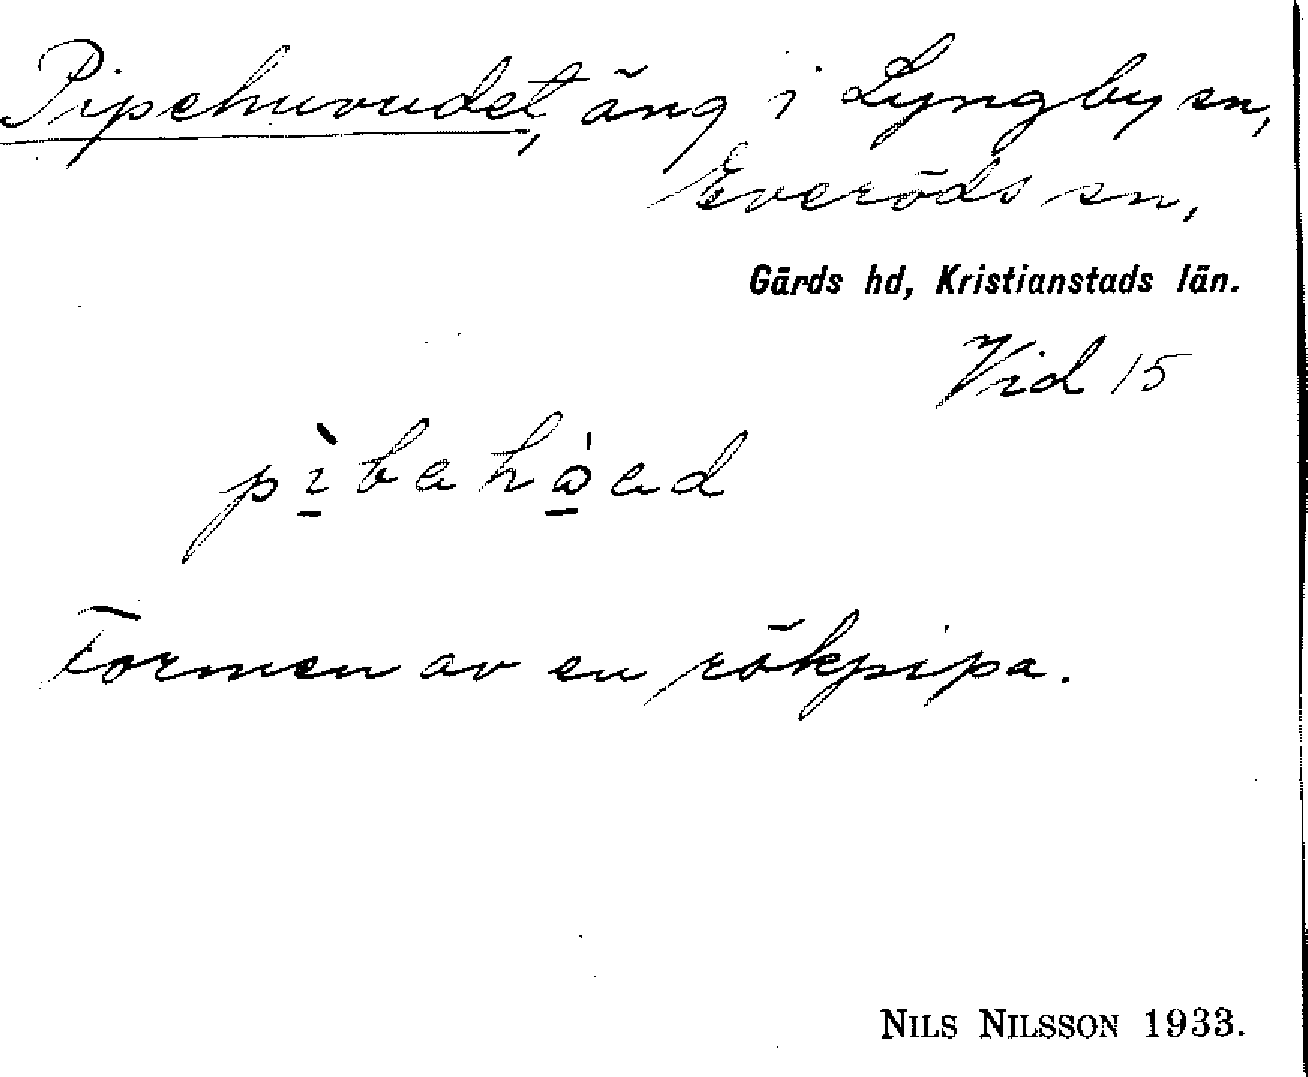 Pipehuvudet, äng i Lyngby sn,
Everöds sn,
Gärds hd, Kristianstads län.
Vid 15
pì̱bahǻ̱ad
Formen av en rökpipa.
NILS NILSSON 1933.